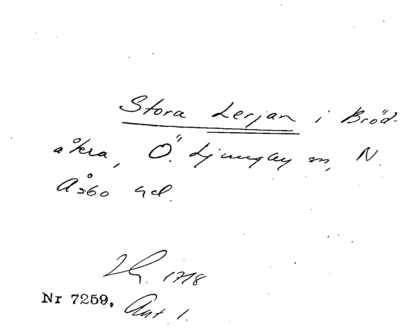 Stora Lerjan i Bröd-
åkra, Ö. Ljungby sn, N.
Åsbo hd.
1718
Nr 7259, Akt 1.